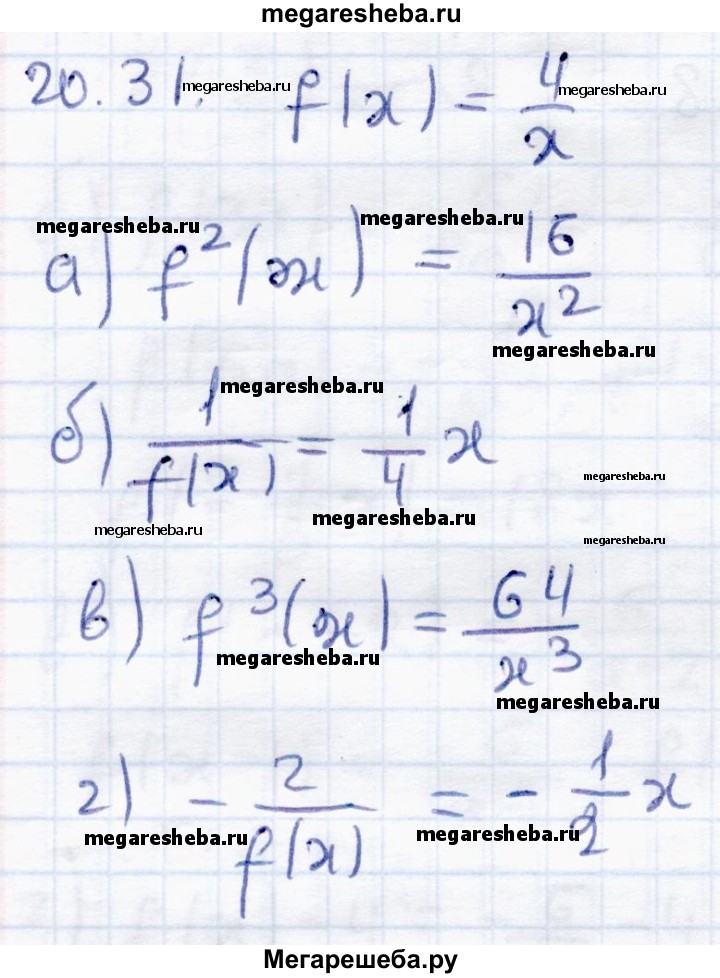 megaresheba.ru
20.31. megaresheba.ru f(x) = 4/x megaresheba.ru
megaresheba.ru megaresheba.ru
а) f²(x) = 16/x²
megaresheba.ru
megaresheba.ru
б) 1/f(x) = 1/4 x
megaresheba.ru
megaresheba.ru
megaresheba.ru
megaresheba.ru
в) f³(x) = 64/x³
megaresheba.ru
megaresheba.ru
г) - 2/f(x) = - 1/2 x
megaresheba.ru megaresheba.ru
Мегарешеба.ру